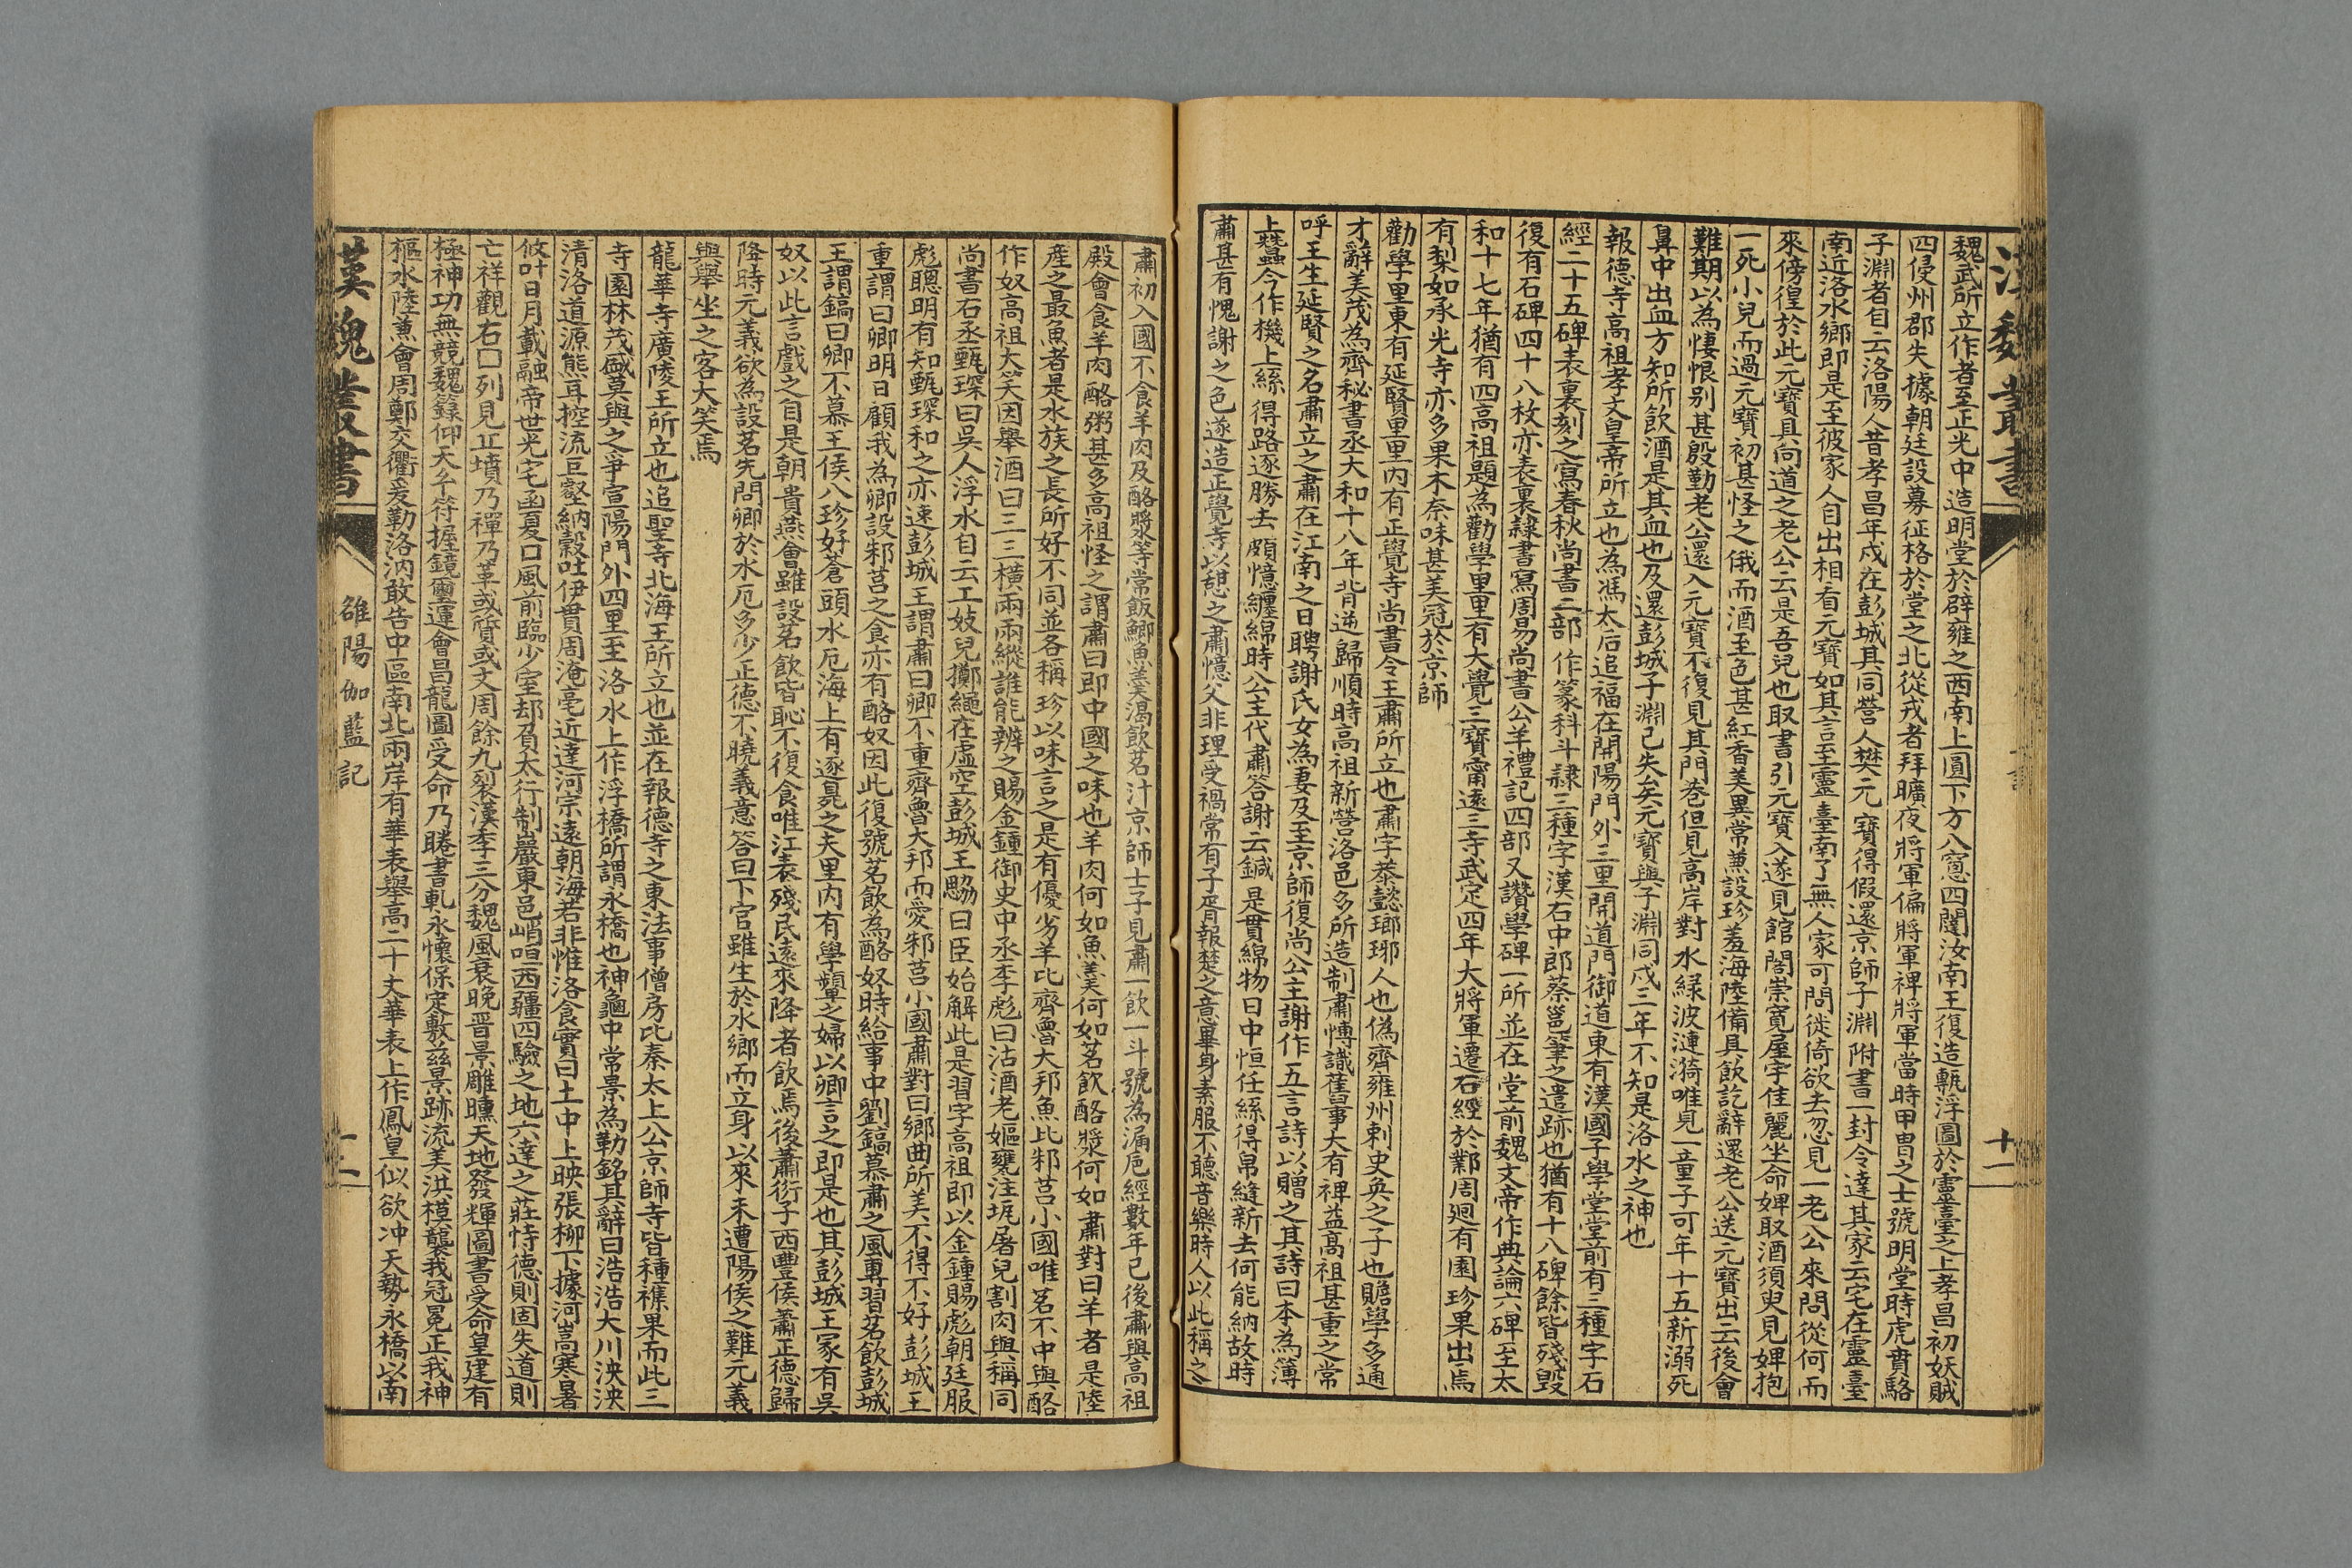 漢魏叢書
十一
魏武所立作者至正光中造明堂於辟雍之西南上圓下方八窻四闥汝南王復造甎浮圖於靈臺之上孝昌初妖賊
四侵州郡失據朝廷設募征格於堂之北從戎者拜曠夜將軍偏將軍裨將軍當時甲胄之士號明堂時虎賁駱
子淵者自云洛陽人昔孝昌年戍在彭城其同營人樊元寶得假還京師子淵附書一封令達其家云宅在靈臺
南近洛水鄉即是至彼家人自出相看元寶如其言至靈臺南了無人家可問徙倚欲去忽見一老公來問從何而
來傍徨於此元寶具向道之老公云是吾兒也取書引元寶入遂見館閣崇寬屋宇佳麗坐命婢取酒須臾見婢抱
一死小兒而過元寶初甚怪之俄而酒至色甚紅香美異常兼設珍羞海陸備具飲訖辭還老公送元寶出云後會
難期以為悽恨别甚殷勤老公還入元寶不復見其門巷但見高岸對水緑波漣漪唯見一童子可年十五新溺死
鼻中出血方知所飲酒是其血也及還彭城子淵已失矣元寶與子淵同戍三年不知是洛水之神也
報德寺高祖孝文皇帝所立也為馮太后追福在開陽門外三里開道門御道東有漢國子學堂堂前有三種字石
經二十五碑表裏刻之寫春秋尚書二部作篆科斗隷三種字漢石中郎蔡邕筆之遺跡也猶有十八碑餘皆殘毁
復有石碑四十八枚亦表裏隷書寫周易尚書公羊禮記四部又讚學碑一所並在堂前魏文帝作典論六碑至太
和十七年猶有四高祖題為勸學里里有大覺三寶甯遠三寺武定四年大將軍遷石經於鄴周廻有園珍果出焉
有梨如承光寺亦多果木奈味甚美冠於京師
勸學里東有延賢里里内有正覺寺尚書令王肅所立也肅字恭懿瑯琊人也偽齊雍州刺史奐之子也贍學多通
才辭美茂為齊秘書丞大和十八年背逆歸順時高祖新營洛邑多所造制肅愽識舊事大有裨益高祖甚重之常
呼王生延賢之名肅立之肅在江南之日聘謝氏女為妻及至京師復尚公主謝作五言詩以贈之其詩曰本為簿
上蠶今作機上絲得路逐勝去頗憶纏綿時公主代肅答謝云鍼是貫綿物目中恒任絲得帛縫新去何能納故時
肅甚有愧謝之色遂造正覺寺以憩之肅憶父非理受禍常有子胥報楚之意畢身素服不聽音樂時人以此稱之
肅初入國不食羊肉及酪漿等常飯鯽魚羹渴飲茗汁京師士子見肅一飲一斗號為漏巵經數年已後肅與高祖
殿會食羊肉酪粥甚多高祖怪之謂肅曰即中國之味也羊肉何如魚羹何如茗飲酪漿何如肅對曰羊者是陸
産之最魚者是水族之長所好不同並各稱珍以味言之是有優劣羊比齊魯大邦魚比邾莒小國唯茗不中與酪
作奴高祖大笑因舉酒曰三三橫兩兩縱誰能辨之賜金鍾御史中丞李彪曰沽酒老嫗甕注㼜屠兒割肉與稱同
尚書右丞甄琛曰吳人浮水自云工妓兒擲繩在虚空彭城王勰曰臣始解此是習字高祖即以金鍾賜彪朝廷服
彪聰明有知甄琛和之亦速彭城王謂肅曰卿不重齊魯大邦而愛邾莒小國肅對曰鄉曲所美不得不好彭城王
重謂曰卿明日顧我為卿設邾莒之食亦有酪奴因此復號茗飲為酪奴時給事中劉鎬慕肅之風專習茗飲彭城
王謂鎬曰卿不慕王侯八珍好蒼頭水厄海上有逐臭之夫里内有學顰之婦以卿言之即是也其彭城王家有吳
奴以此言戲之自是朝貴燕會雖設茗飲皆恥不復食唯江表殘民遠來降者飲焉後蕭衍子西豐侯蕭正德歸
降時元義欲為設茗先問卿於水厄多少正德不曉義意答曰下官雖生於水鄉而立身以來未遭陽侯之難元義
與舉坐之客大笑焉
龍華寺廣陵王所立也追聖寺北海王所立也並在報德寺之東法事僧房比秦太上公京師寺皆種襍果而此三
寺園林茂盛莫與之爭宣陽門外四里至洛水上作浮橋所謂永橋也神龜中常景為勒銘其辭曰浩浩大川泱泱
清洛道源熊耳控流巨壑納穀吐伊貫周淹亳近達河宗遠朝海若非惟洛食實曰土中上映張柳下據河嵩寒暑
攸叶日月載融帝世光宅函夏口風前臨少室却負太行制巖東邑峭岨西疆四驗之地六達之莊恃德則固失道則
亡祥觀右囗列見丘墳乃禪乃革或質或文周餘九裂漢季三分魏風衰晚晋景雕曛天地發輝圖書受命皇建有
極神功無競魏籙仰天乆符握鏡璽運會昌龍圖受命乃睠書軌永懷保定敷兹景跡流美洪模襲我冠冕正我神
樞水陸兼會周鄭交衢爰勒洛汭敢告中區南北兩岸有華表舉高二十丈華表上作鳳皇似欲冲天勢永橋以南
漢魏叢書
雒陽伽藍記
十二